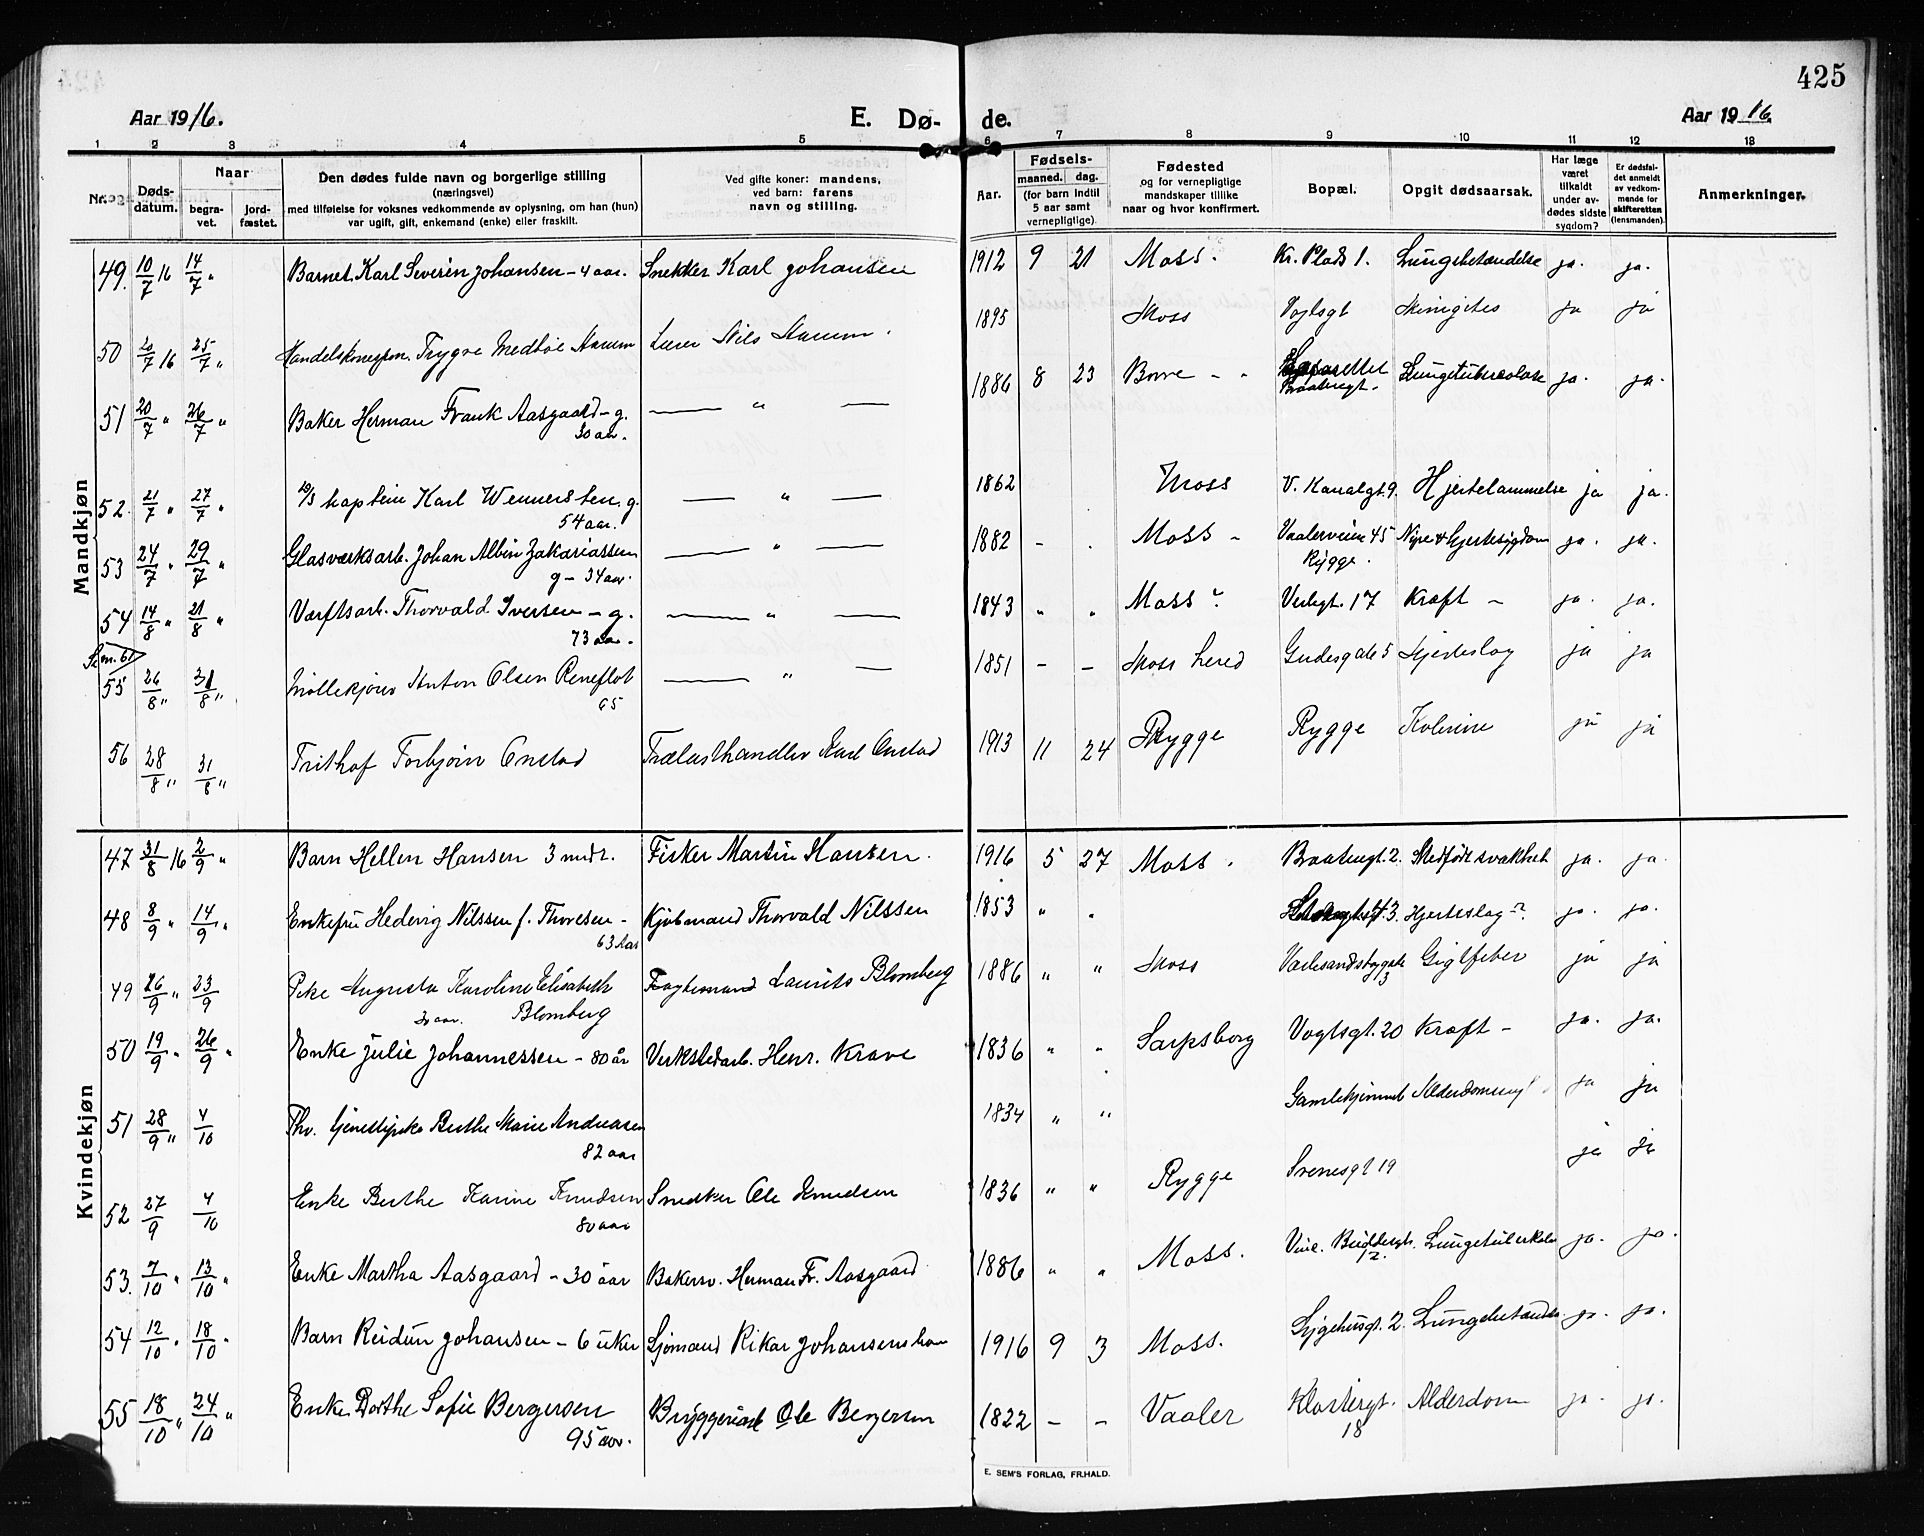 425
Aar 1916.
E. Dø-
de.
Aar 1916.
1 2 3 4 5 6 7 8 9 10 11 12 13
Nr.
Døds-
datum.
Naar
begra-
vet.
jord-
fæstet.
Den dødes fulde navn og borgerlige stilling
(næringsvei)
med tilføielse for voksnes vedkommende av oplysning, om han (hun)
var ugift, gift, enkemand (enke) eller fraskilt.
Ved gifte koner: mandens,
ved barn: farens
navn og stilling.
Aar.
Fødsels-
maaned. dag.
(for barn indtil
5 aar samt
vernepligtige).
Fødested
og for vernepligtige
mandskaper tillike
naar og hvor konfirmert.
Bopæl.
Opgit dødsaarsak.
Har læge
været
tilkaldt
under av-
dødes sidste
sygdom?
Er dødsfal-
det anmeldt
av vedkom-
mende for
skifteretten
(lensmanden).
Anmerkninger.
Mandkjøn
49. 10/7 16 14/7 " Barnet Karl Severin Johansen - 4 aar. Snekker Karl Johansen 1912 9 21 Moss. Kr. Plads 1. Lungebetændelse ja. ja.
50 20/7 16 25/7 " Trygve Medbøe Lærer Nils 1895 Moss Vogtsgt ja ja
51 20/7 " 26/7 " Baker Herman Frank Aasgaard - g. — " — 1886 8 23 Borre - " Lasarettet Lungetuberculose ja. ja.
30 aar. Baatengt.
52. 21/7 " 27/7 " D/S kaptein Karl Wennersten. g. — " — 1862 Moss V. Kanalgt. 9. Hjertelammelse ja ja.
54 aar.
53 24/7 " 29/7 " Glasværksarb. Johan Albin Zakariassen — " — 1882 - . Moss - Vaalerveien 45 Nyre & hjertesygdom ja. ja.
g - 34 aar. Rygge.
54 14/8 " 21/8 " Værftsarb. Thorvald Iversen - g. — " — 1843 " " Moss ? Verlegt. 17 Kræft - ja. ja.
73 aar.
Se n. 61
55 26/8 " 31/8 " Møllekjører Anton Olsen Reneflot — " — 1851 - - Moss herred Gudesgate 5 Hjerteslag ja ja
65
56 28/8 " 31/8 " Frithof Torbjørn Onstad Trælasthandler Karl Onstad 1913 11 24 Rygge Rygge Kolerine ja ja
Kvindekjøn
47 31/8 16 2/9 " Barn Hellen Hansen 3 mdr. Fisker Martin Hansen. 1916 5 27 Moss. Baatengt. 2. Medfødt svakhet ja. ja.
48 8/9 " 14/9 " Enkefru Hedevig Nilssen f. Thoresen - Kjøbmand Thorvald Nilssen 1853 " " 3. Hjerteslag ?. ja. ja.
63 aar
49 26/9 " 23/9 Pike Augusta Karoline Elisabeth Fragtemand Laurits Blomberg 1886 " " Moss Værlesandsbygate Gigtfeber ja ja
30 aar. Blomberg 3
50 19/9 " 26/9 " Enke Julie Johannessen - 80 år Verkstedarb. Henr. Krave 1836 " " Sarpsborg Vogtsgt. 20 Kræft - ja. ja.
51 28/9 " 4/10 Fhv. tjenestepike Berthe Marie Andreasen 1834 " " Gamlehjemmet ja ja
82 aar
52 27/9 4/10 Enke Berthe Karine Knudsen Snedker Ole Knudsen 1836 " " Rygge Svenesgt 19 ja ja
80 aar
53. 7/10 " 13/10 " Enke Martha Aasgaard - 30 aar Bakersv. Herman Fr. Aasgaard 1886 " " Moss. Vinc. Buddesgt. Lungetuberkulose ja. ja.
12.
54 12/10 " 18/10 " Barn Reidun Johansen - 6 uker Sjømand Rikar Johansenshav 1916 9 3 Moss. Sygehusgt. 2. Lungebetændelse ja. ja.
55 18/10 " 24/10 " Enke Dorthe Sofie Bergersen Bryggeriarb Ole Bergersen 1822 - - Vaaler Klostergt. Alderdom ja. ja.
95 aar. 18
E. SEM'S FORLAG, FR.HALD.